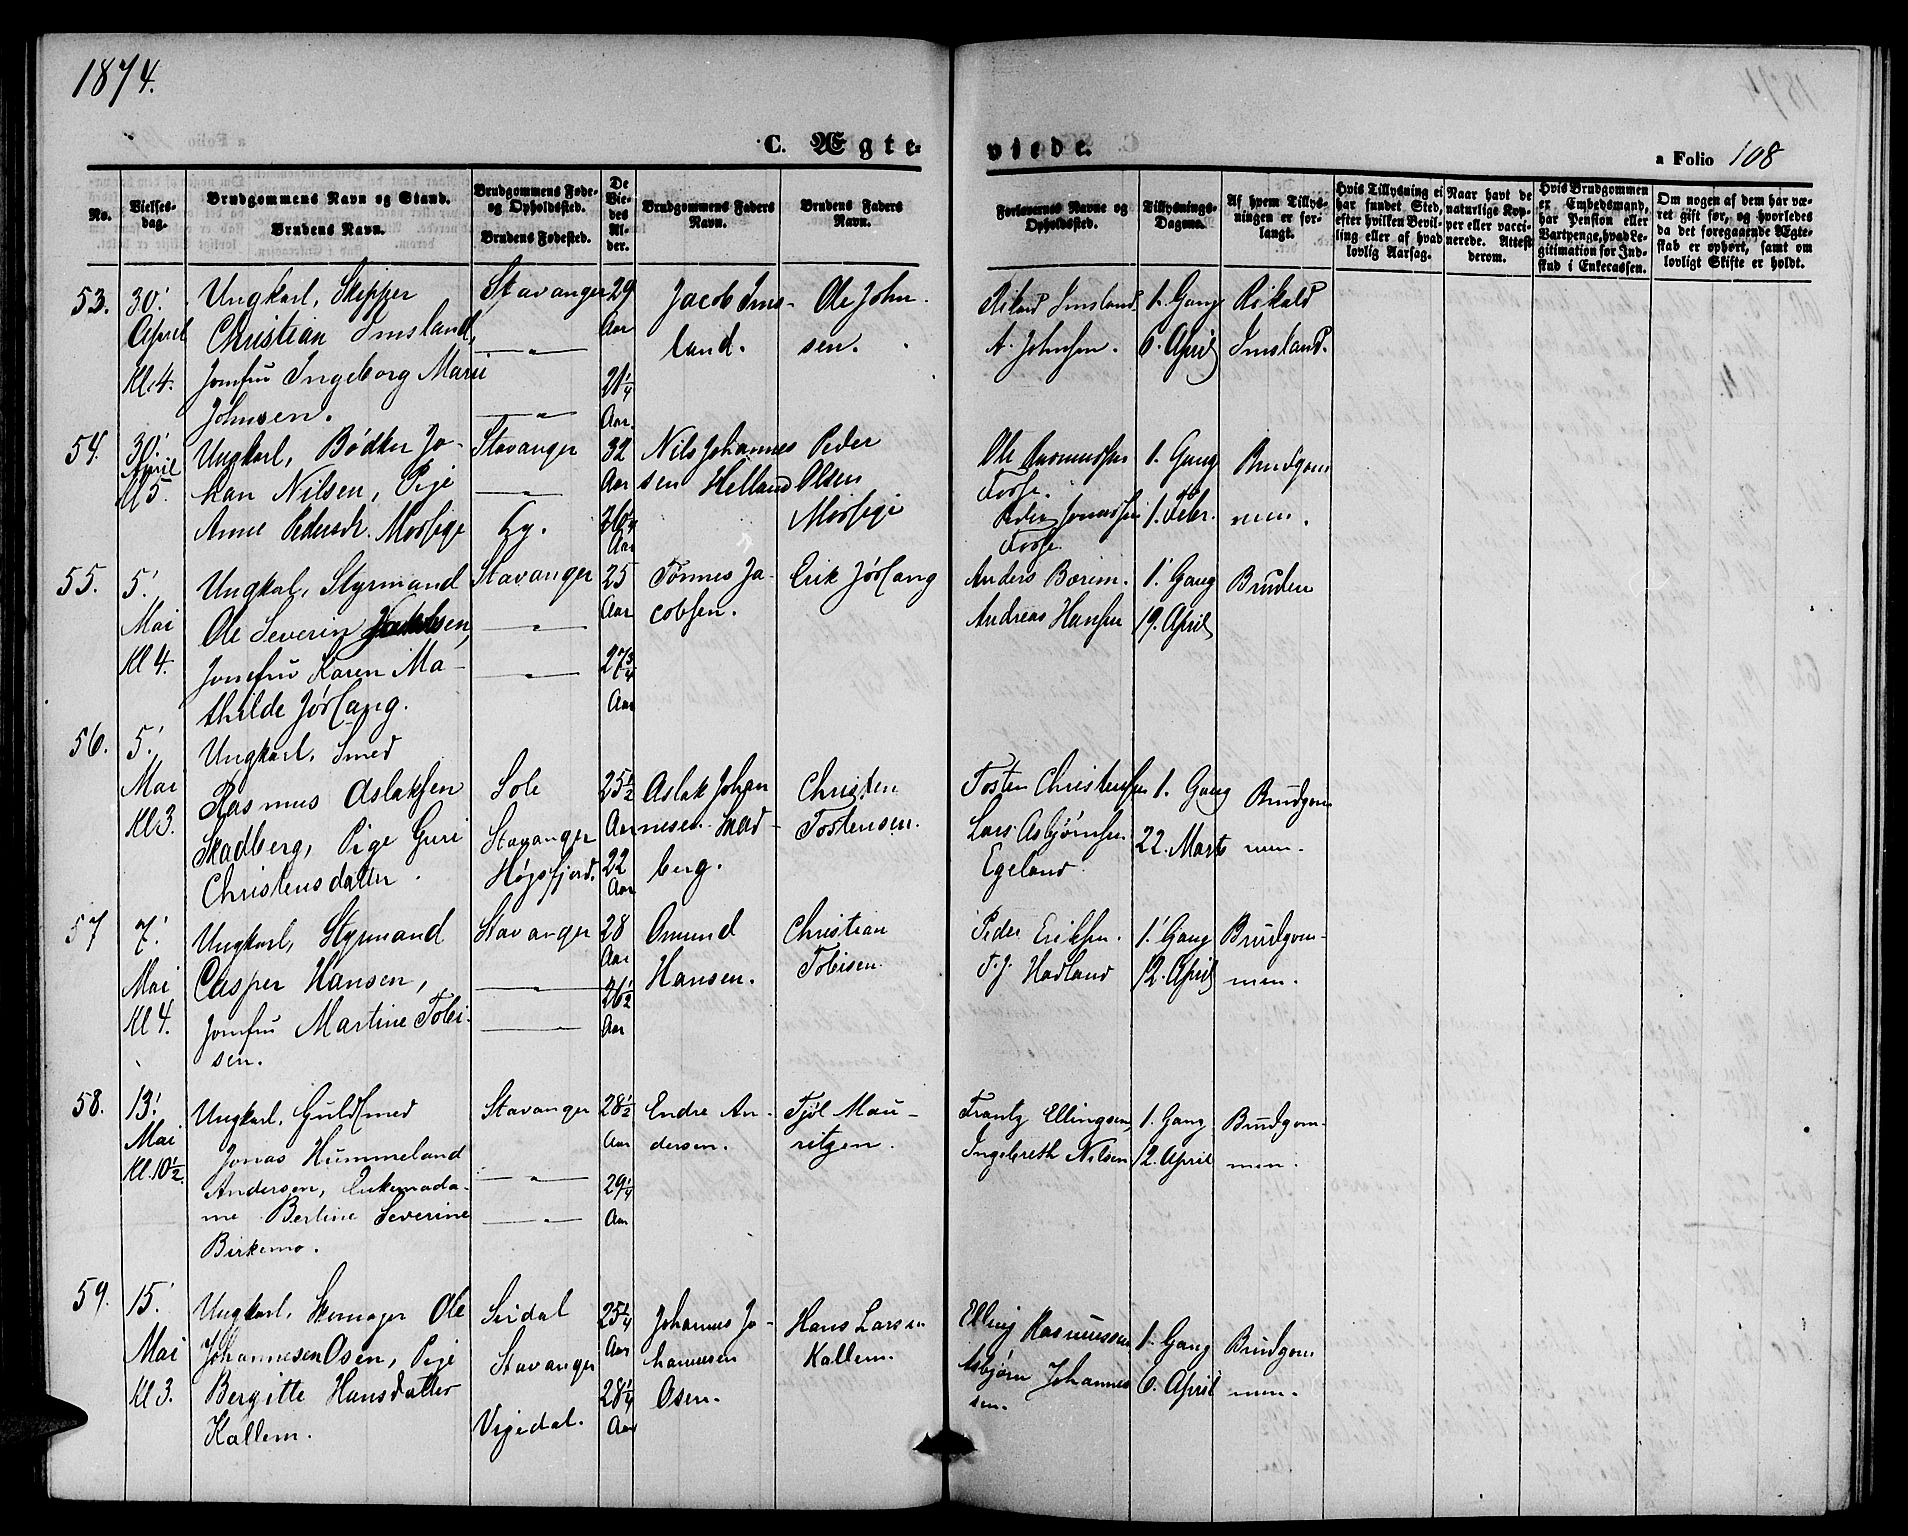 1874.
C. Ægte-
viede.
a Folio 108
No.
Vielses-
dag.
Brudgommens Navn og Stand.
Brudens Navn.
Brudgommens Føde-
og Opholdssted.
Brudens Fødested.
De
Vie-
des
Al-
der.
Brudgommens Faders
Navn.
Brudens Faders
Navn.
Forlovernes Navne og
Opholdssted.
Tillysnings-
Dagene.
Af hvem Tillys-
ningen er for-
langt.
Hvis Tillysning ei
har fundet Sted,
efter hvilken Bevil-
ling eller af hvad
lovlig Aarsag.
Naar havt de
naturlige Kop-
per eller vacci-
nerede. Attest
derom.
Hvis Brudgommen
er Embedsmand,
har Pension eller
Vartpenge, hvad Le-
gitimation for Ind-
skud i Enkecassen.
Om nogen af dem har væ-
ret gift før, og hvorledes
da det foregaaende Ægte-
skab er ophørt, samt om
lovligt Skifte er holdt.
53.
30'
April
Kl. 4.
Ungkarl, Skipper
Christian Imsland,
Jomfru Ingeborg Marie
Johnsen.
Stavanger
— " —
— " —
29
Aar
21 1/4
Aar.
Jacob Ims-
land.
Ole John-
sen.
Rikard Imsland
A. Johnsen.
1. Gang
6. April
Rikald
Imsland.
54.
30'
April
Kl 5.
Ungkarl, Bødker Jo-
han Nilsen, Pige
Anne Pedersdr. Morsige
Stavanger
— " —
32
Aar
Aar
Nils Johannes
sen Helland
Peder
Olsen
Morsige
Ole Rasmussen
1. Gang
1. Febr.
Brudgom
men.
55.
5'
Mai
Kl 4.
Ungkarl, Styrmand
Ole Severin
Jomfru Karen Ma-
thilde Jørsang.
Stavanger
— " —
— " —
25
Aar
27 3/4
Aar
Tønnes Ja-
cobsen.
Erik Jørsang
Anders Bærem.
Andreas Hansen
1' Gang
19. April
Bruden
56.
5'
Mai
Kl 3.
Ungkarl, Smed
Rasmus Aslaksen
Skadberg, Pige Guri
Christensdatter.
Sole
Stavanger
Høgsfjord.
25 1/2
Aar
22
Aar
Aslak Johan
nesen Skad-
berg.
Christen
Tostensen.
Tosten Christensen
Lars Asbjørnsen
Egeland
1. Gang
22. Marts
Brudgom
men.
57
7'
Mai
Kl 4.
Ungkarl, Styrmand
Casper Hansen,
Jomfru Martine Tobi-
sen.
Stavanger
— " —
— " —
28
Aar
26 1/2
Aar
Omund
Hansen.
Christian
Tobisen.
Peder Eriksen.
T. J. Hadland
1' Gang
12. April
Brudgom-
men.
58.
13'
Mai
Kl. 10 1/2
Ungkarl, Guldsmed
Jonas Hummeland
Andersen, Enkemada-
me Bertine Severine
Birkemo.
Stavanger
— " —
— " —
28 1/2
Aar
29 1/4
Aar
Endre An-
dersen.
Fjøl Mau-
ritzen.
Frantz Ellingsen,
Ingebreth Nilsen
1. Gang
12. April
Brudgom-
men.
59.
15'
Mai
Kl 3.
Ungkarl, Skomager Ole
Johannesen Osen, Pige
Bergitte Hansdatter
Kallem.
Sirdal
Stavanger
Vigedal.
25 1/4
Aar
28 1/4
Aar
Johannes Jo-
hannesen
Osen.
Hans Larsen
Kallem.
Elling Rasmussen
Asbjørn Johannes
sen.
1. Gang
6. April
Brudgom
men.